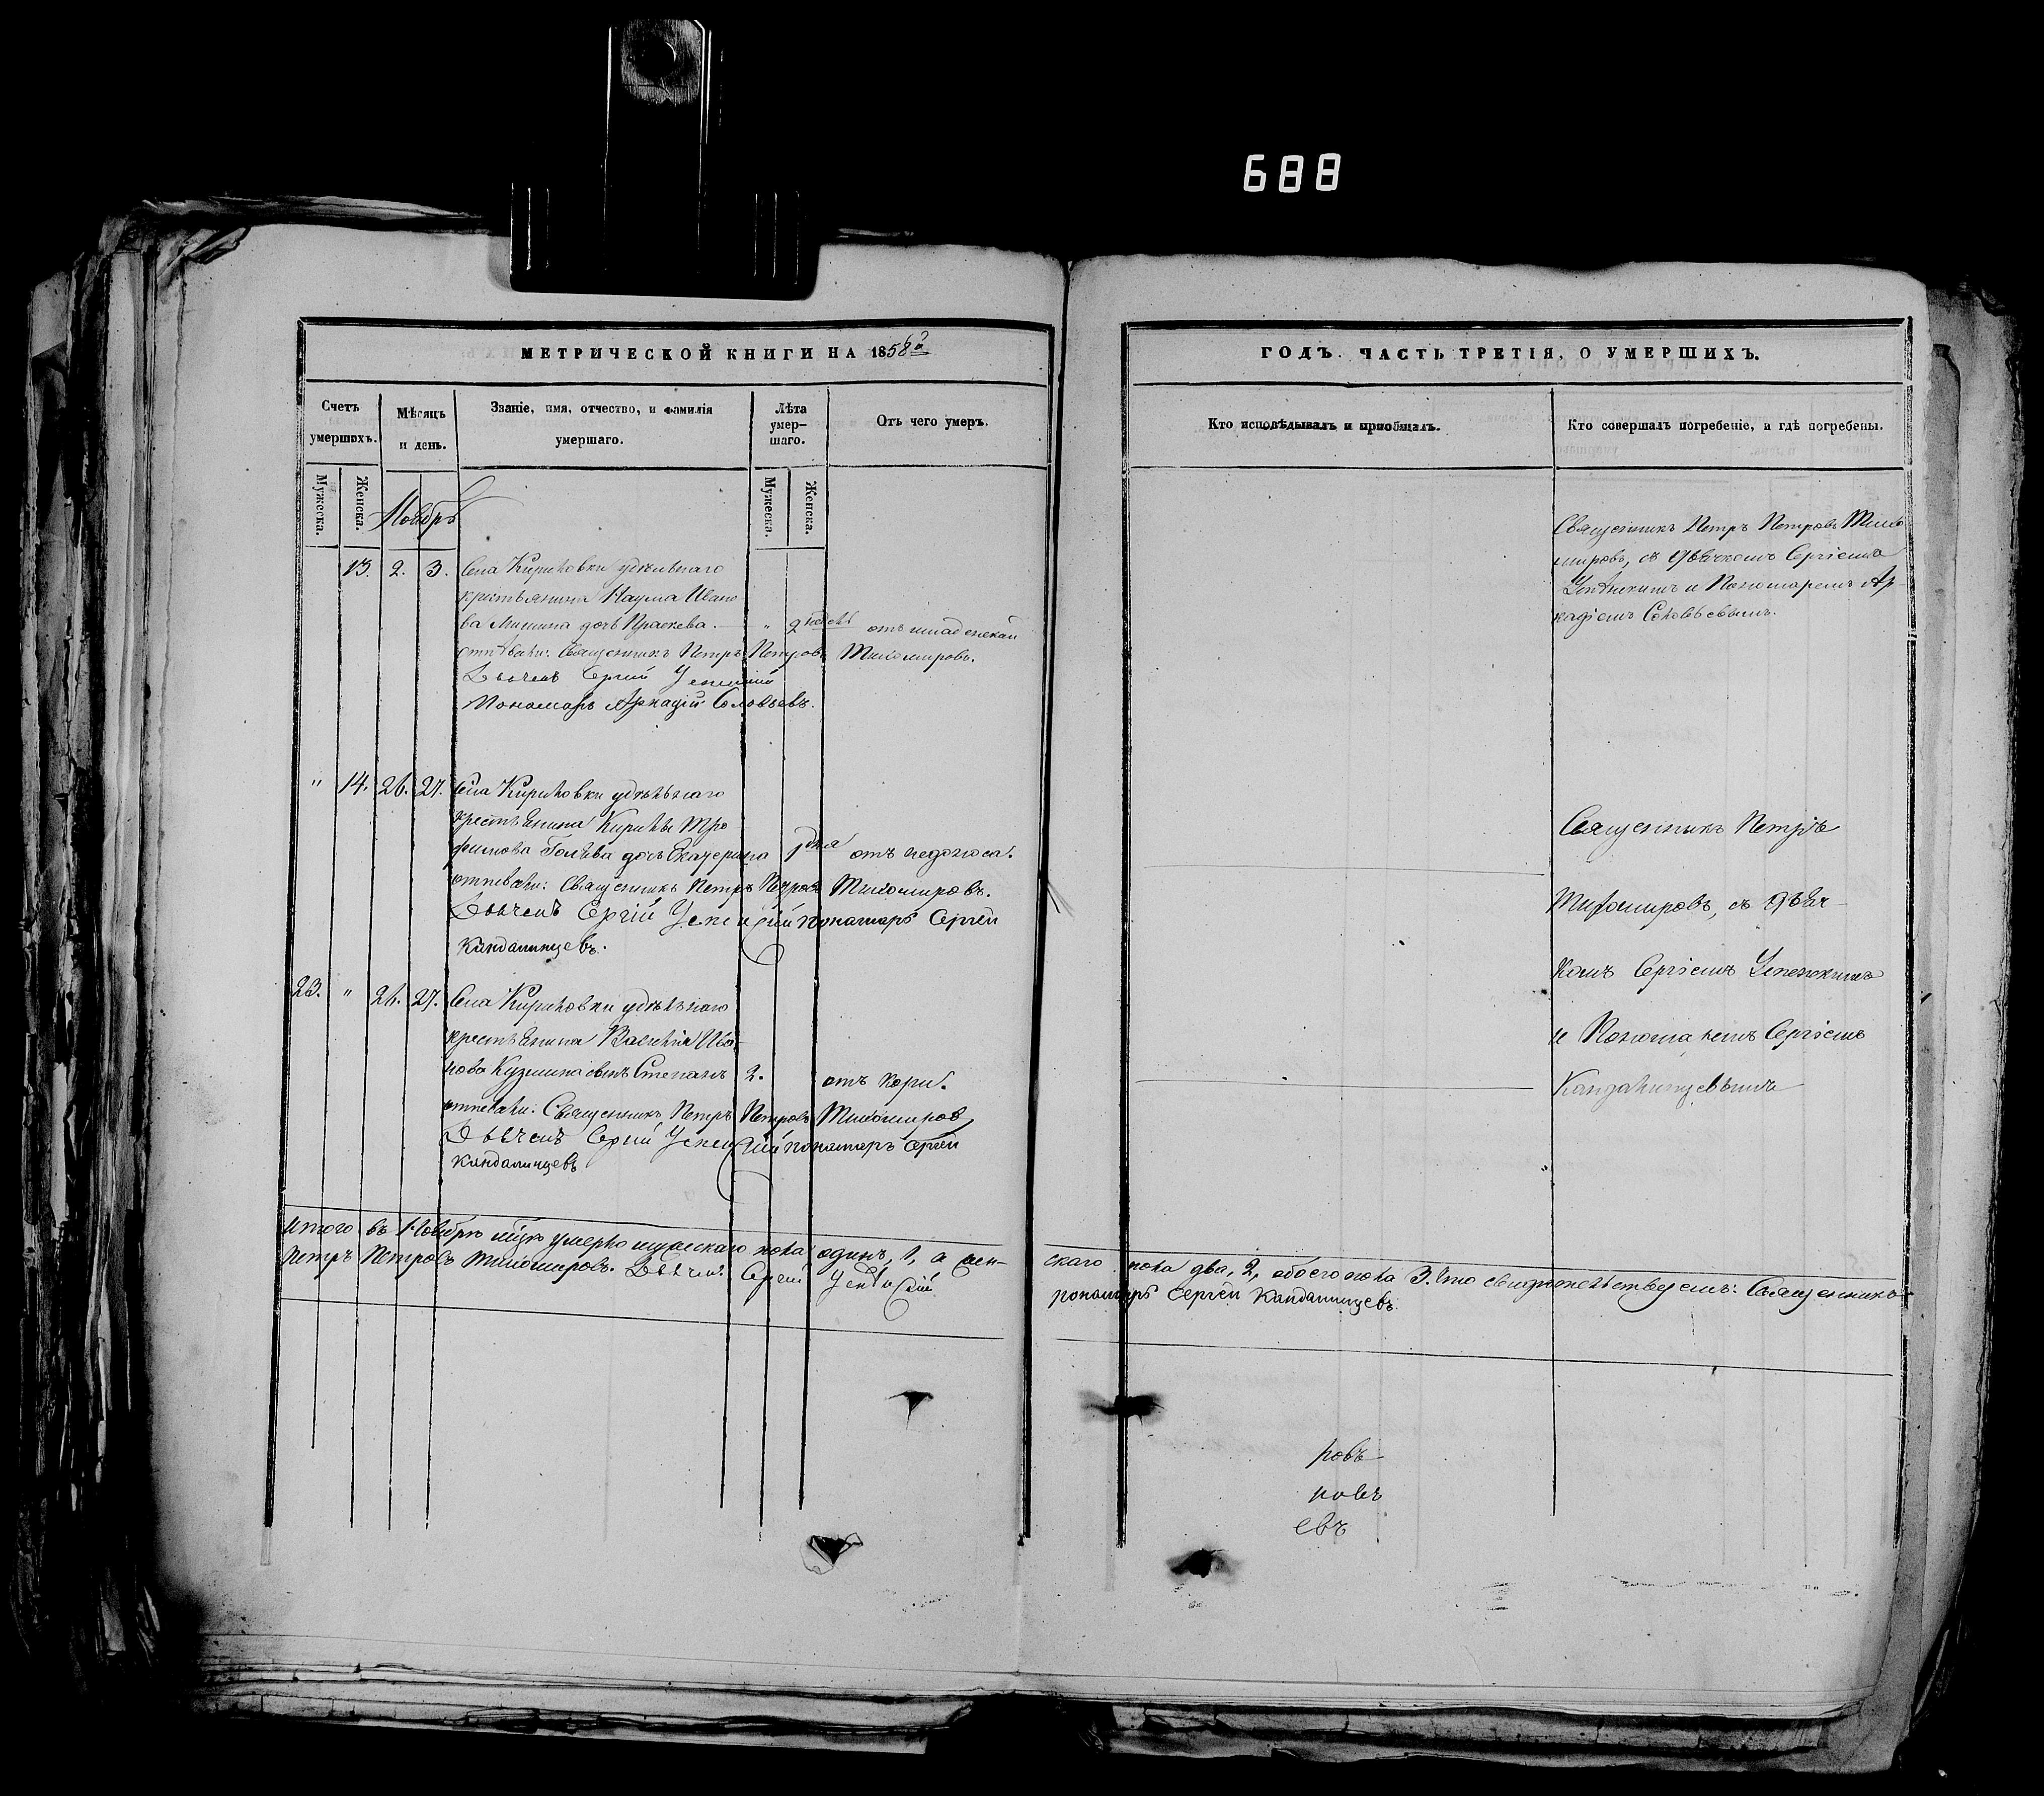 688
МЕТРИЧЕСКОЙ КНИГИ НА 1858й
Счетъ умершихъ.
Мѣсяцъ и день.
Званіе, имя, отчество, и фамилія умершаго.
Лѣта умершаго.
Отъ чего умеръ.
Мужеска.
Женска.
Мужеска.
Женска.
Ноябрь
13. 2. 3. Села Кириловки удѣльнаго
крестьянина Наума Ивано
ва Мишина дочь Праскева. " 2 недѣль отъ младенской
отпѣвали: Священникъ Петръ Петровъ Тихомировъ.
Дьячекъ Сергій Успенскій
Пономарь Аркадій Соловьевъ.
" 14. 26. 27. Села Кириловки удѣльнаго
крестьянина Кирилы Тро
фимова дочь Екатерина 1 дня отъ недоноса.
отпевали: Священникъ Петръ Петровъ Тихомировъ.
Дьячекъ Сергій Успенскій пономарь Сергей
Кандалинцевъ.
23. " 26. 27. Села Кириловки удѣльнаго
крестьянина Василія Ива
нова Кузмина сынъ Степанъ 2. отъ кори.
отпевали: Священникъ Петръ Петровъ Тихомировъ
Дьячекъ Сергій Успенскій пономарь Сергей
Кандалинцевъ
итого въ Ноябрѣ мцѣ умерло мужескаго пола одинъ, 1, а жен-
Петръ Петровъ Тихомировъ. Дьячекъ Сергій Успенскій
ГОДЪ. ЧАСТЬ ТРЕТІЯ, О УМЕРШИХЪ.
Кто исповѣдывалъ и пріобщалъ.
Кто совершалъ погребеніе, и гдѣ погребены.
Священникъ Петръ Петровъ Тихо
мировъ, съ дьячкомъ Сергіемъ
Успѣнскимъ и Пономаремъ Ар
кадіемъ Соловьевымъ.
Священникъ Петръ
Тихомировъ, съ дьяч-
комъ Сергіемъ Успенскимъ
и Пономаремъ Сергіемъ
Кандалинцевымъ
скаго пола два, 2, обоего пола 3. Что свидѣтельствуемъ: Священникъ
пономарь Сергей Кандалинцевъ.
ровъ
новъ
евъ